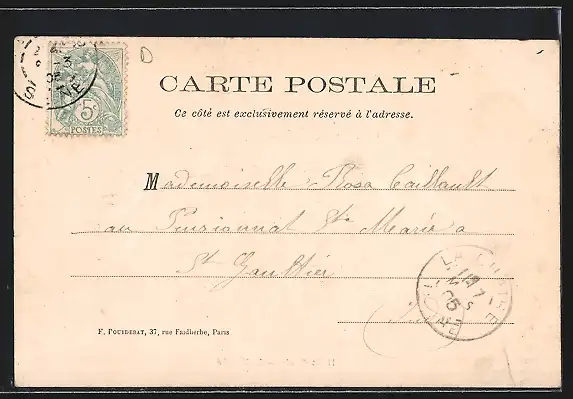 CARTE POSTALE
Ce côté est exclusivement réservé à l'adresse.
5
POSTES
Mademoiselle Rosa Caillault
au Pensionnat Ste Marie a
St Gaultier
F. POUYDEBAT, 37, rue Faidherbe, Paris